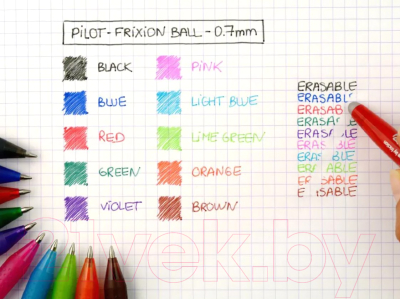 PILOT-FRIXION BALL-0.7mm
BLACK
BLUE
RED
GREEN
VIOLET
PINK
LIGHT BLUE
LIME GREEN
ORANGE
BROWN
ERASABLE
ERASABL
ERASAB
ERASA
ERASA LE
ERAS BLE
ERA ABLE
ER ABLE
E SABLE
E SABLE
21vek.by